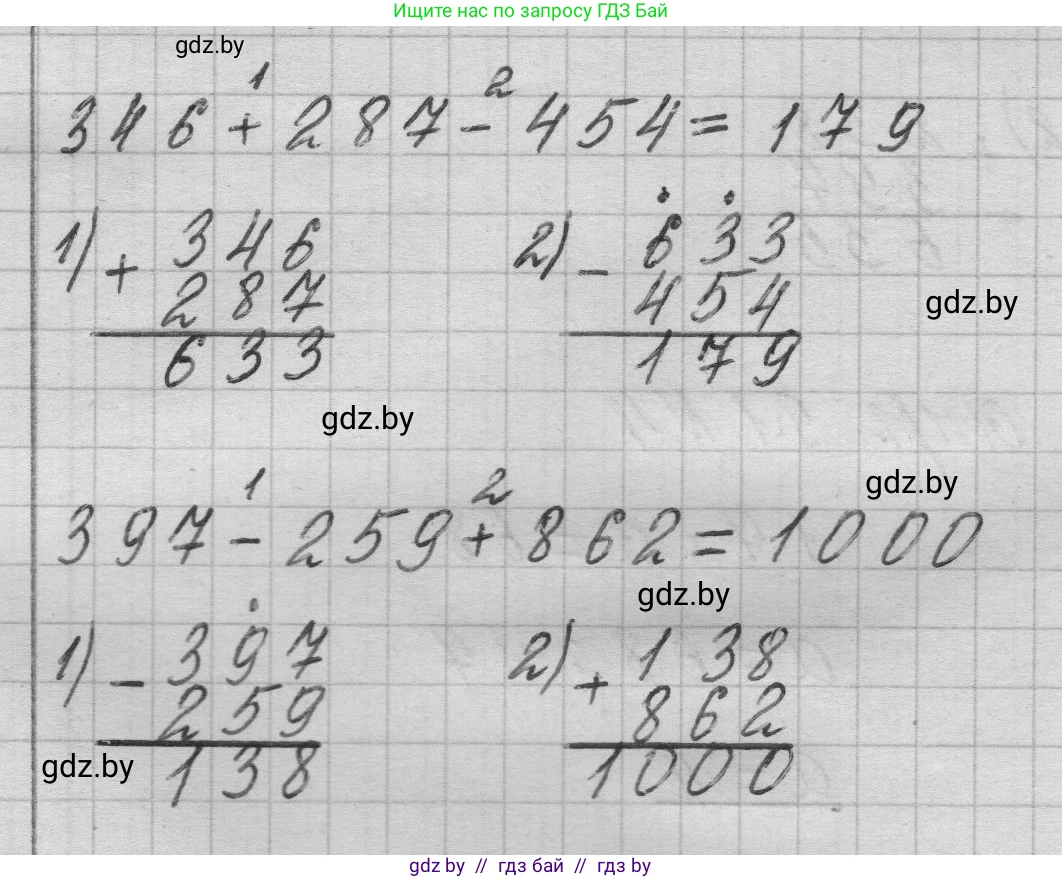 Ищите нас по запросу ГДЗ Бай
gdz.by
1 2
346+287-454=179
1) + 346
287
633
2) - 633
454
179
gdz.by
gdz.by
gdz.by
1 2
397-259+862=1000
gdz.by
1) - 397
259
138
2) + 138
862
1000
gdz.by
gdz by // гдз бай // гдз by